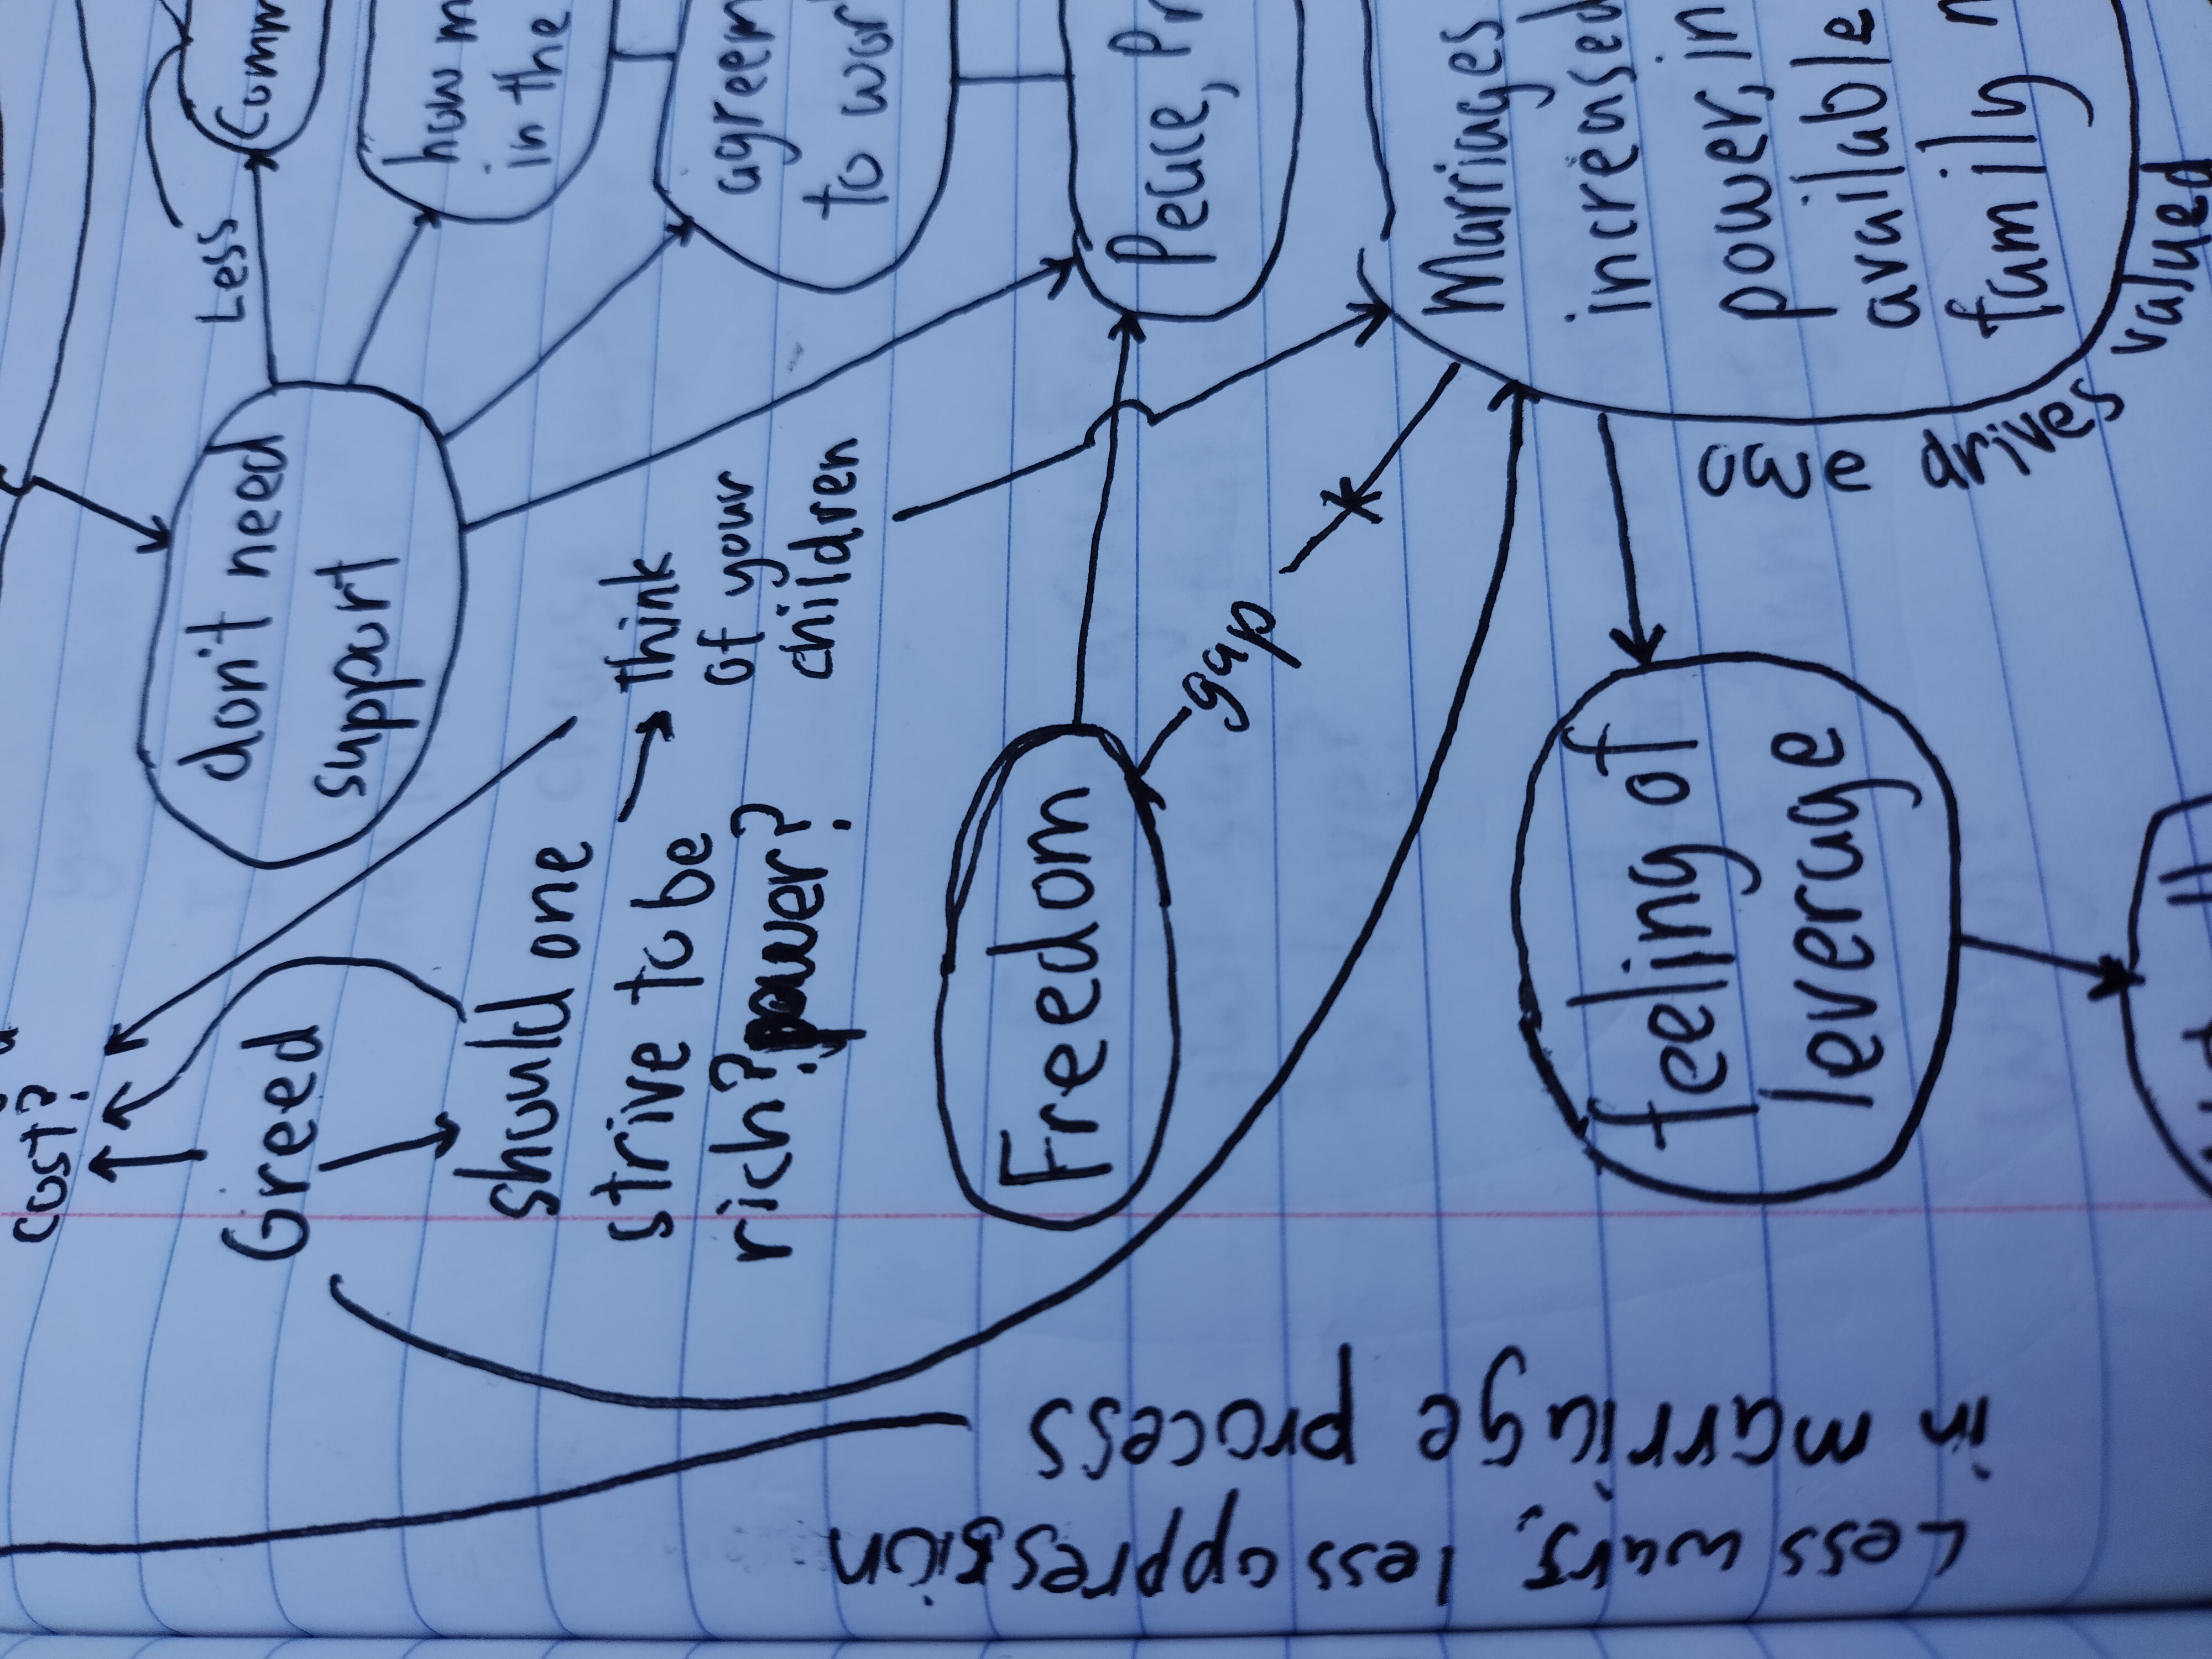 cost?
Greed
should one
strive to be
rich? power?
→ think
of your
children
don't need
support
Less
Comm
how m
in the
agreem
to wor
Peace, Pr
Freedom
gap
Marriages
increased
power, in
available
family
age drives
valued
feeling of
leverage
Less wars, less oppression
in marriage process